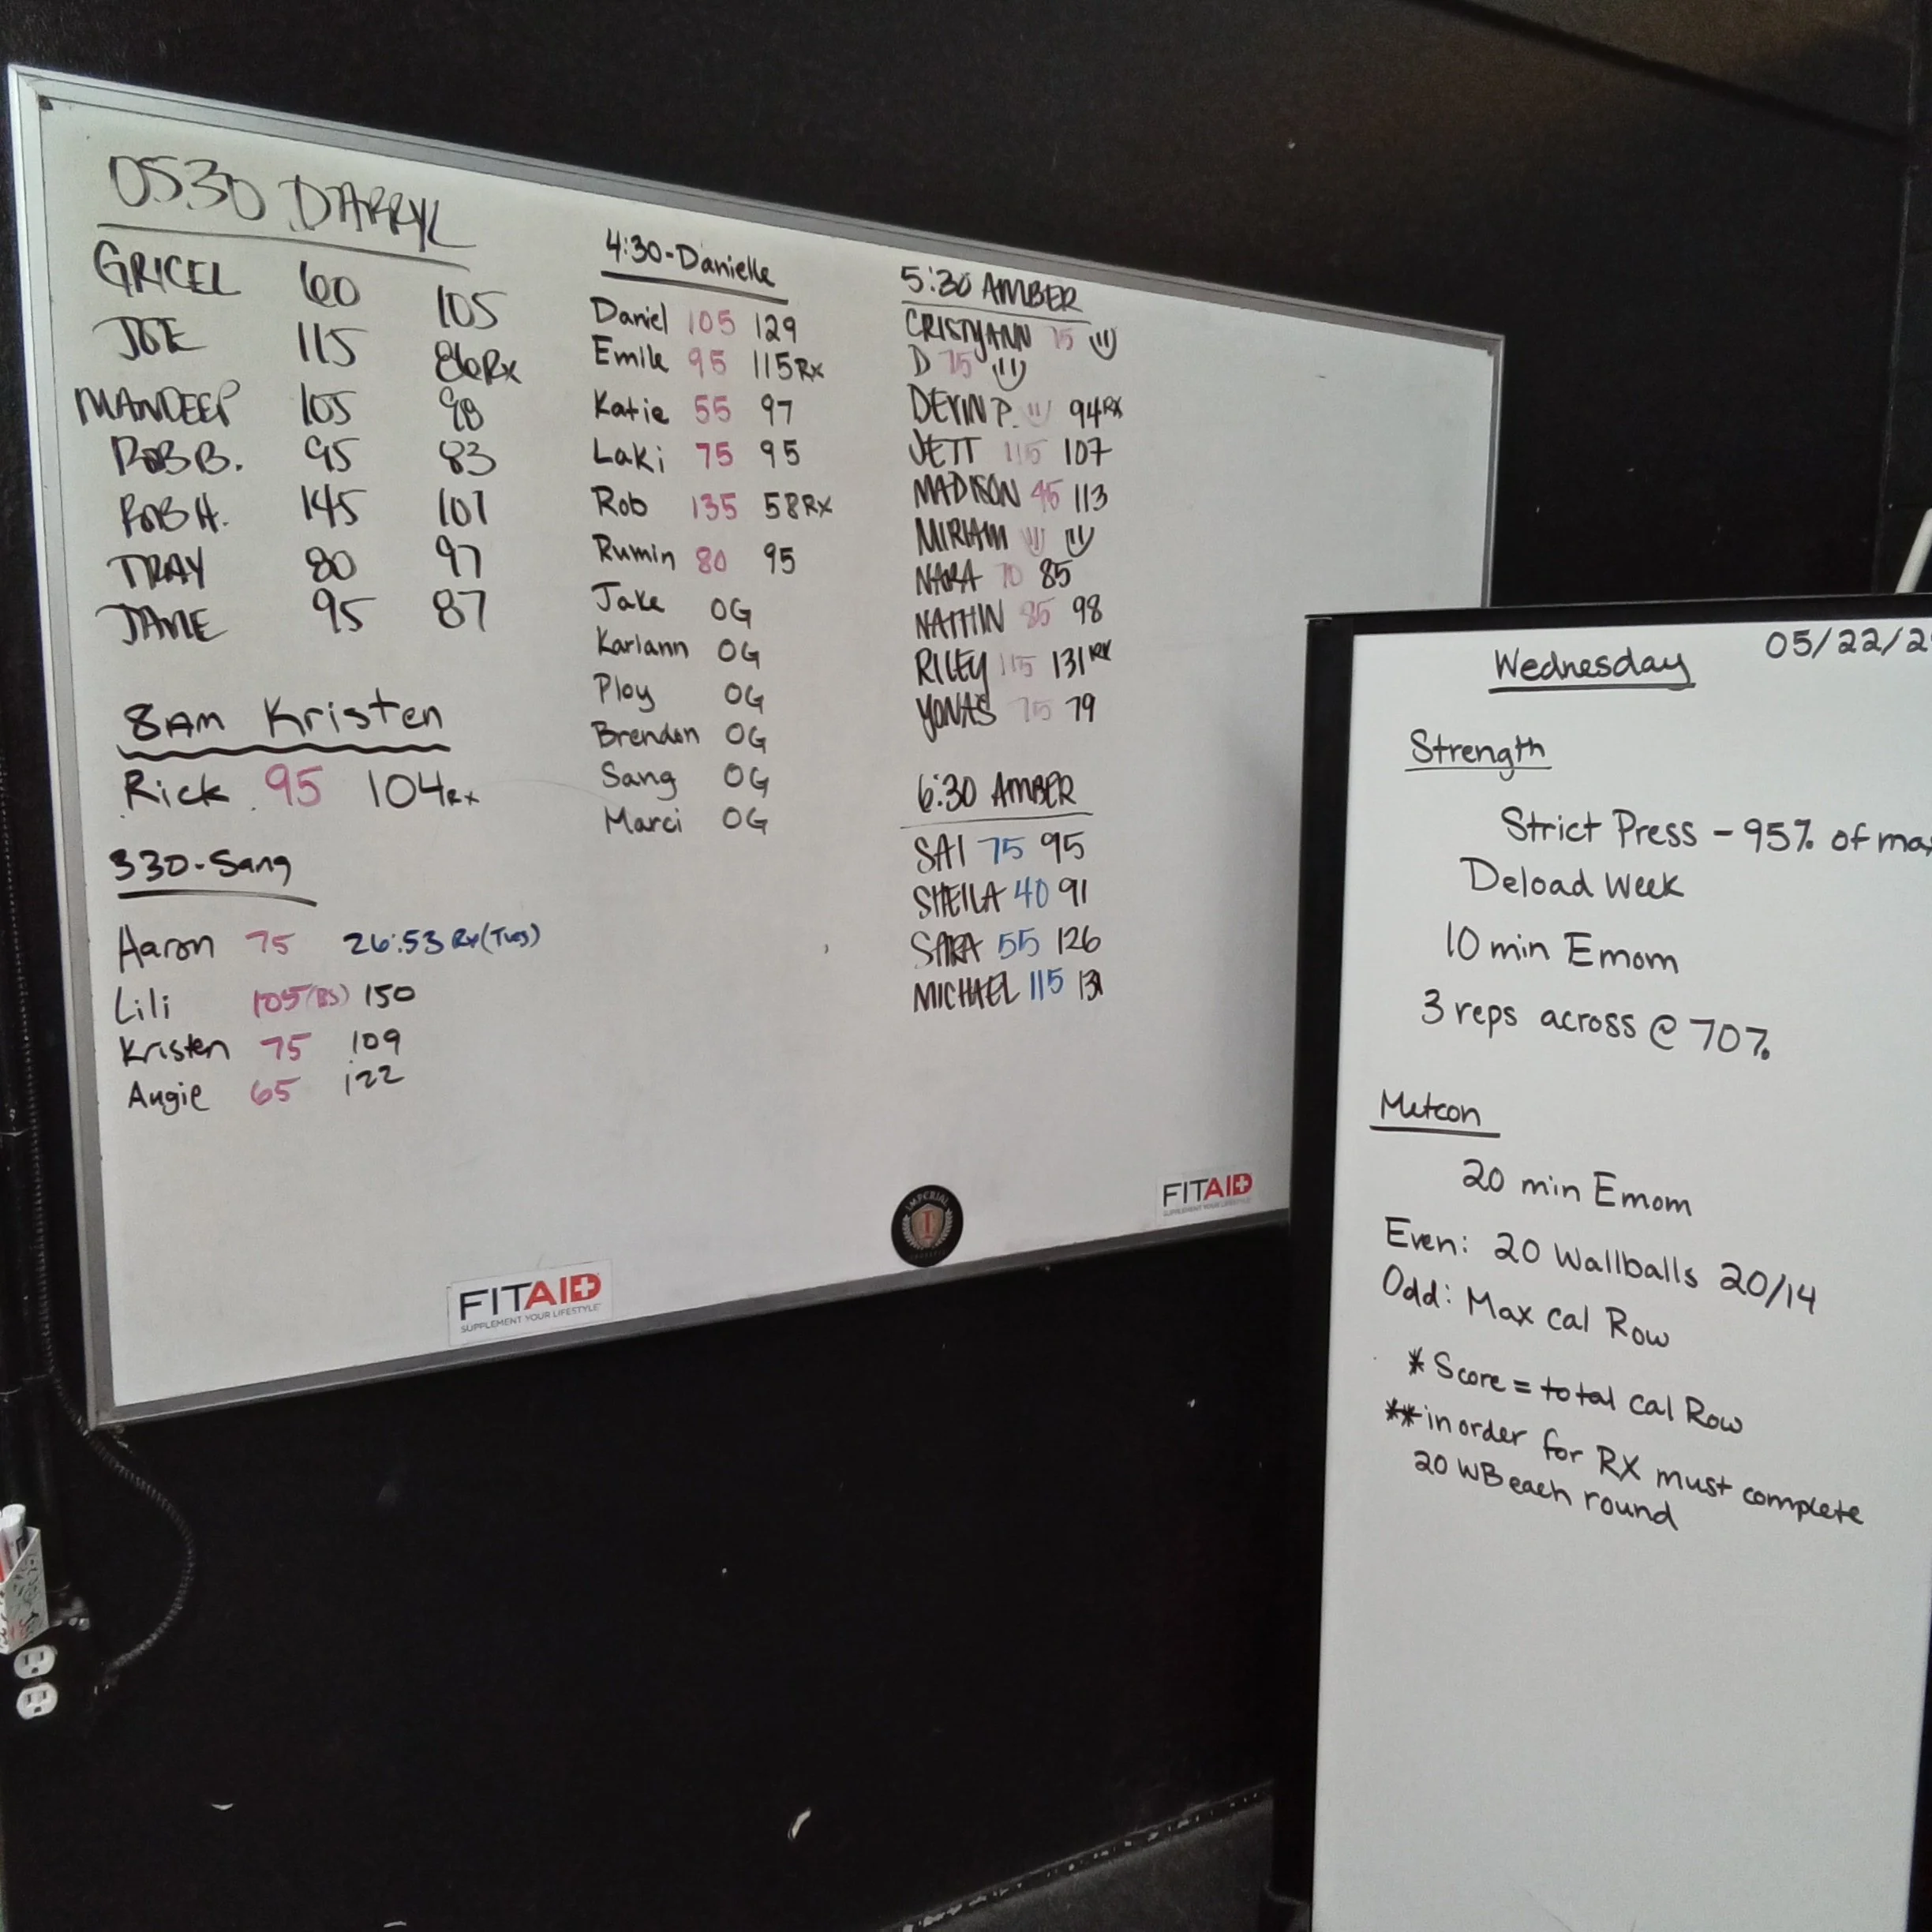 0530 DARRYL
GRICEL 60 105
JOE 115 86Rx
MANDEEP 105 98
ROB B. 95 83
ROB H. 145 101
TRAY 80 97
95 87
8AM Kristen
Rick 95 104Rx
330-Sang
Aaron 75 26:53 Rx (Tues)
Lili 105 (BS) 150
Kristen 75 109
Angie 65 122
4:30-Danielle
Daniel 105 129
Emile 95 115Rx
Katie 55 97
Laki 75 95
Rob 135 58Rx
Rumin 80 95
Jake OG
Karlann OG
Ploy OG
Brendon OG
Sang OG
Marci OG
5:30 AMBER
CRISTYANN 75
D 75
DEVIN P. 94RX
JETT 115 107
MADISON 45 113
MIRIAM
NARA 70 85
NATHIN 85 98
RILEY 115 131RX
YONAS 75 79
6:30 AMBER
SAI 75 95
SHEILA 40 91
SARA 55 126
MICHAEL 115
IMPERIAL
FITAID
SUPPLEMENT YOUR LIFESTYLE
FITAID
SUPPLEMENT YOUR LIFESTYLE
Wednesday 05/22/2
Strength
Strict Press - 95% of max
Deload Week
10 min Emom
3 reps across @ 70%
Metcon
20 min Emom
Even: 20 Wallballs 20/14
Odd: Max Cal Row
* Score = total Cal Row
** in order for RX must complete
20 WB each round